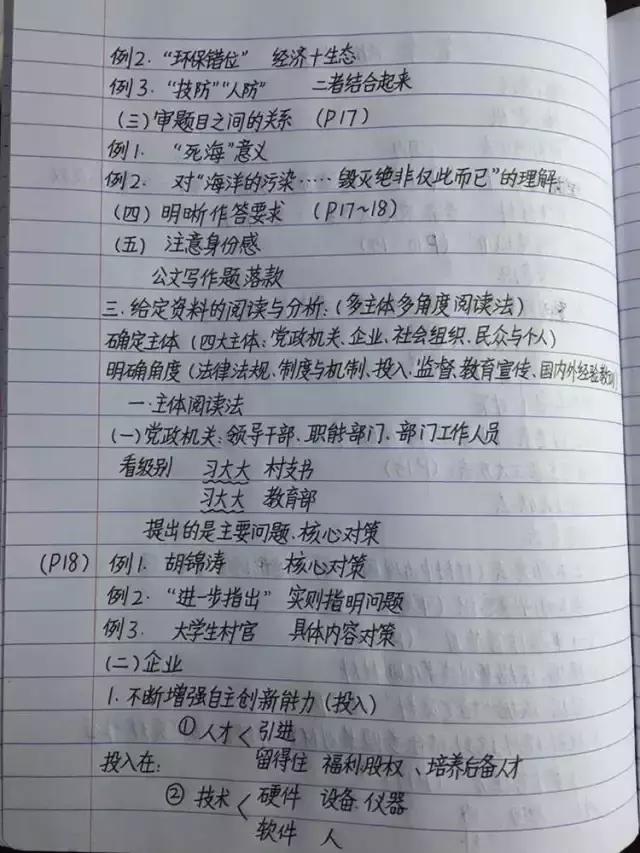 例2. “环保错位” 经济十生态
例3. “技防”“人防” 二者结合起来
(三)审题目之间的关系 (P17)
例1. “死海”意义
例2. 对“海洋的污染……毁灭绝非仅此而已”的理解.
(四)明晰作答要求 (P17~18)
(五) 注意身份感
公文写作题落款
三.给定资料的阅读与分析:(多主体多角度阅读法)
确定主体(四大主体:党政机关、企业、社会组织、民众与个人)
明确角度(法律法规、制度与机制、投入、监督、教育宣传、国内外经验教训
一.主体阅读法
(一)党政机关:领导干部、职能部门、部门工作人员
看级别 习大大 村支书
习大大 教育部
提出的是主要问题、核心对策
(P18) 例1. 胡锦涛 核心对策
例2. “进一步指出” 实则指明问题
例3. 大学生村官 具体内容对策
(二)企业
1.不断增强自主创新能力(投入)
①人才<引进
投入在: 留得住 福利、股权、培养后备人才
②技术<硬件 设备.仪器
软件 人